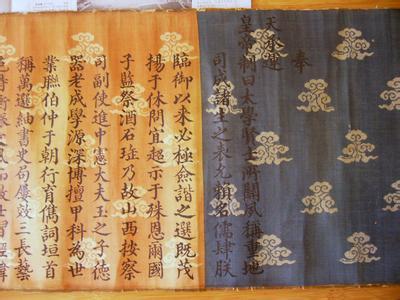 奉
天承運
皇帝制曰太學賢士所關夙稱重地
司成諸士之表尤賴名儒肆朕
臨御以來必極僉諧之選既茂
揚于休問宜超示于殊恩爾國
子監祭酒石珤乃故山西按察
司副使進中憲大夫玉之子德
器老成學源深博擅甲科為世
業聯伯仲于朝行育儁詞垣首
稱萬選紬書史局屢效三長藝